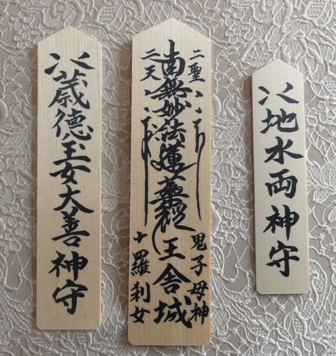 地水両神守
二聖
鬼子母神
南無妙法蓮華経 王舎城
二天
十羅刹女
歳徳玉女大善神守